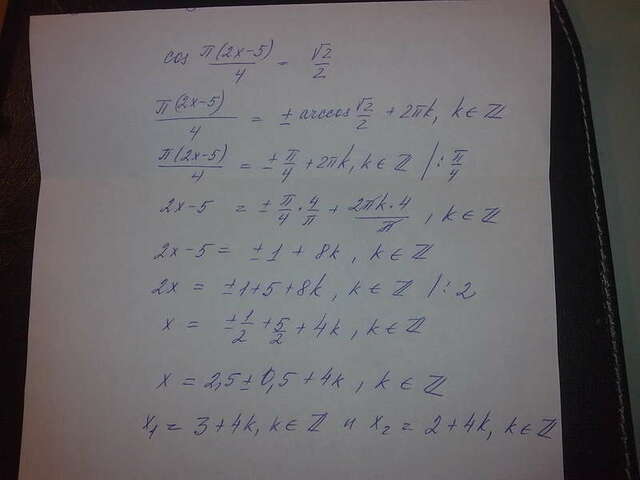 cos π(2x-5)/4 = √2/2
π(2x-5)/4 = ± arccos √2/2 + 2πk, k ∈ ℤ
π(2x-5)/4 = ± π/4 + 2πk, k ∈ ℤ /: π/4
2x-5 = ± π/4 · 4/π + 2πk·4/π, k ∈ ℤ
2x-5 = ±1 + 8k, k ∈ ℤ
2x = ±1+5+8k, k ∈ ℤ /:2
x = ± 1/2 + 5/2 + 4k, k ∈ ℤ
x = 2,5 ± 0,5 + 4k, k ∈ ℤ
x₁ = 3+4k, k ∈ ℤ и x₂ = 2+4k, k ∈ ℤ